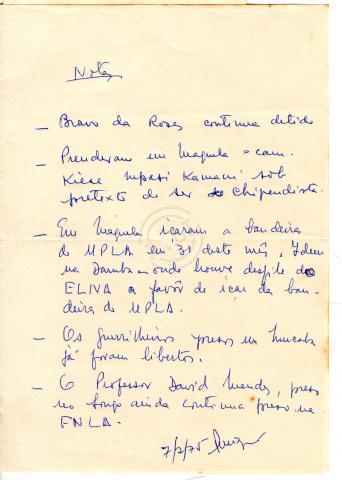 Notas
— Bravo da Rosa continua detido
— Prenderam em Maquela o cam.
Kiese Mpasi Kamani sob
pretexto de ser Chipendista.
— Em Maquela içaram a bandeira
do MPLA em 31 deste mês, Idem
na Damba — onde houve despile do
ELNA a favôr de içar da ban-
deira do MPLA.
— Os guerrilheiros presos em Mucaba
já foram libertos.
— O Professor David Mendes, preso
no Songo ainda continua preso na
FNLA.
7/2/75